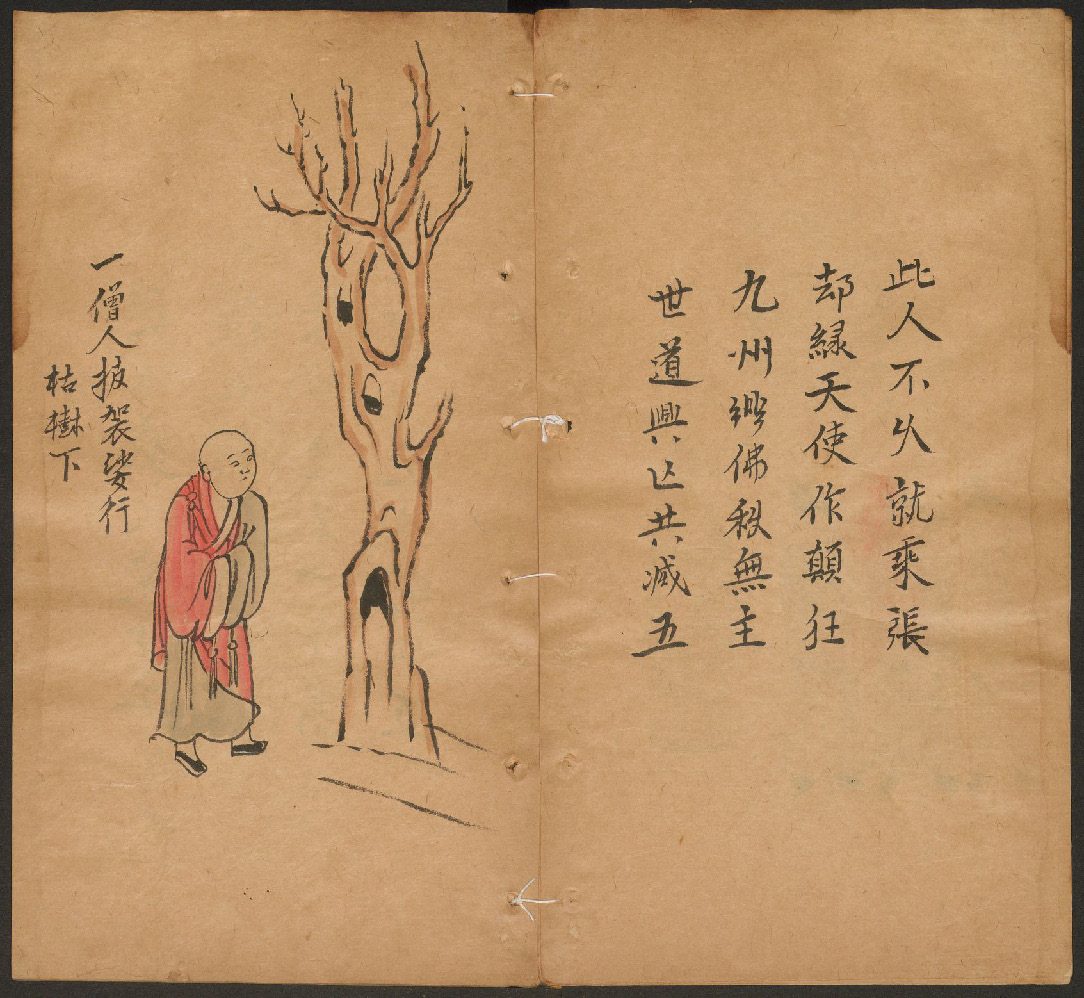 此人不久就乘張
却緑天使作顛狂
九州佛無主
世道興亾共减五
一僧人披袈裟行
枯樹下